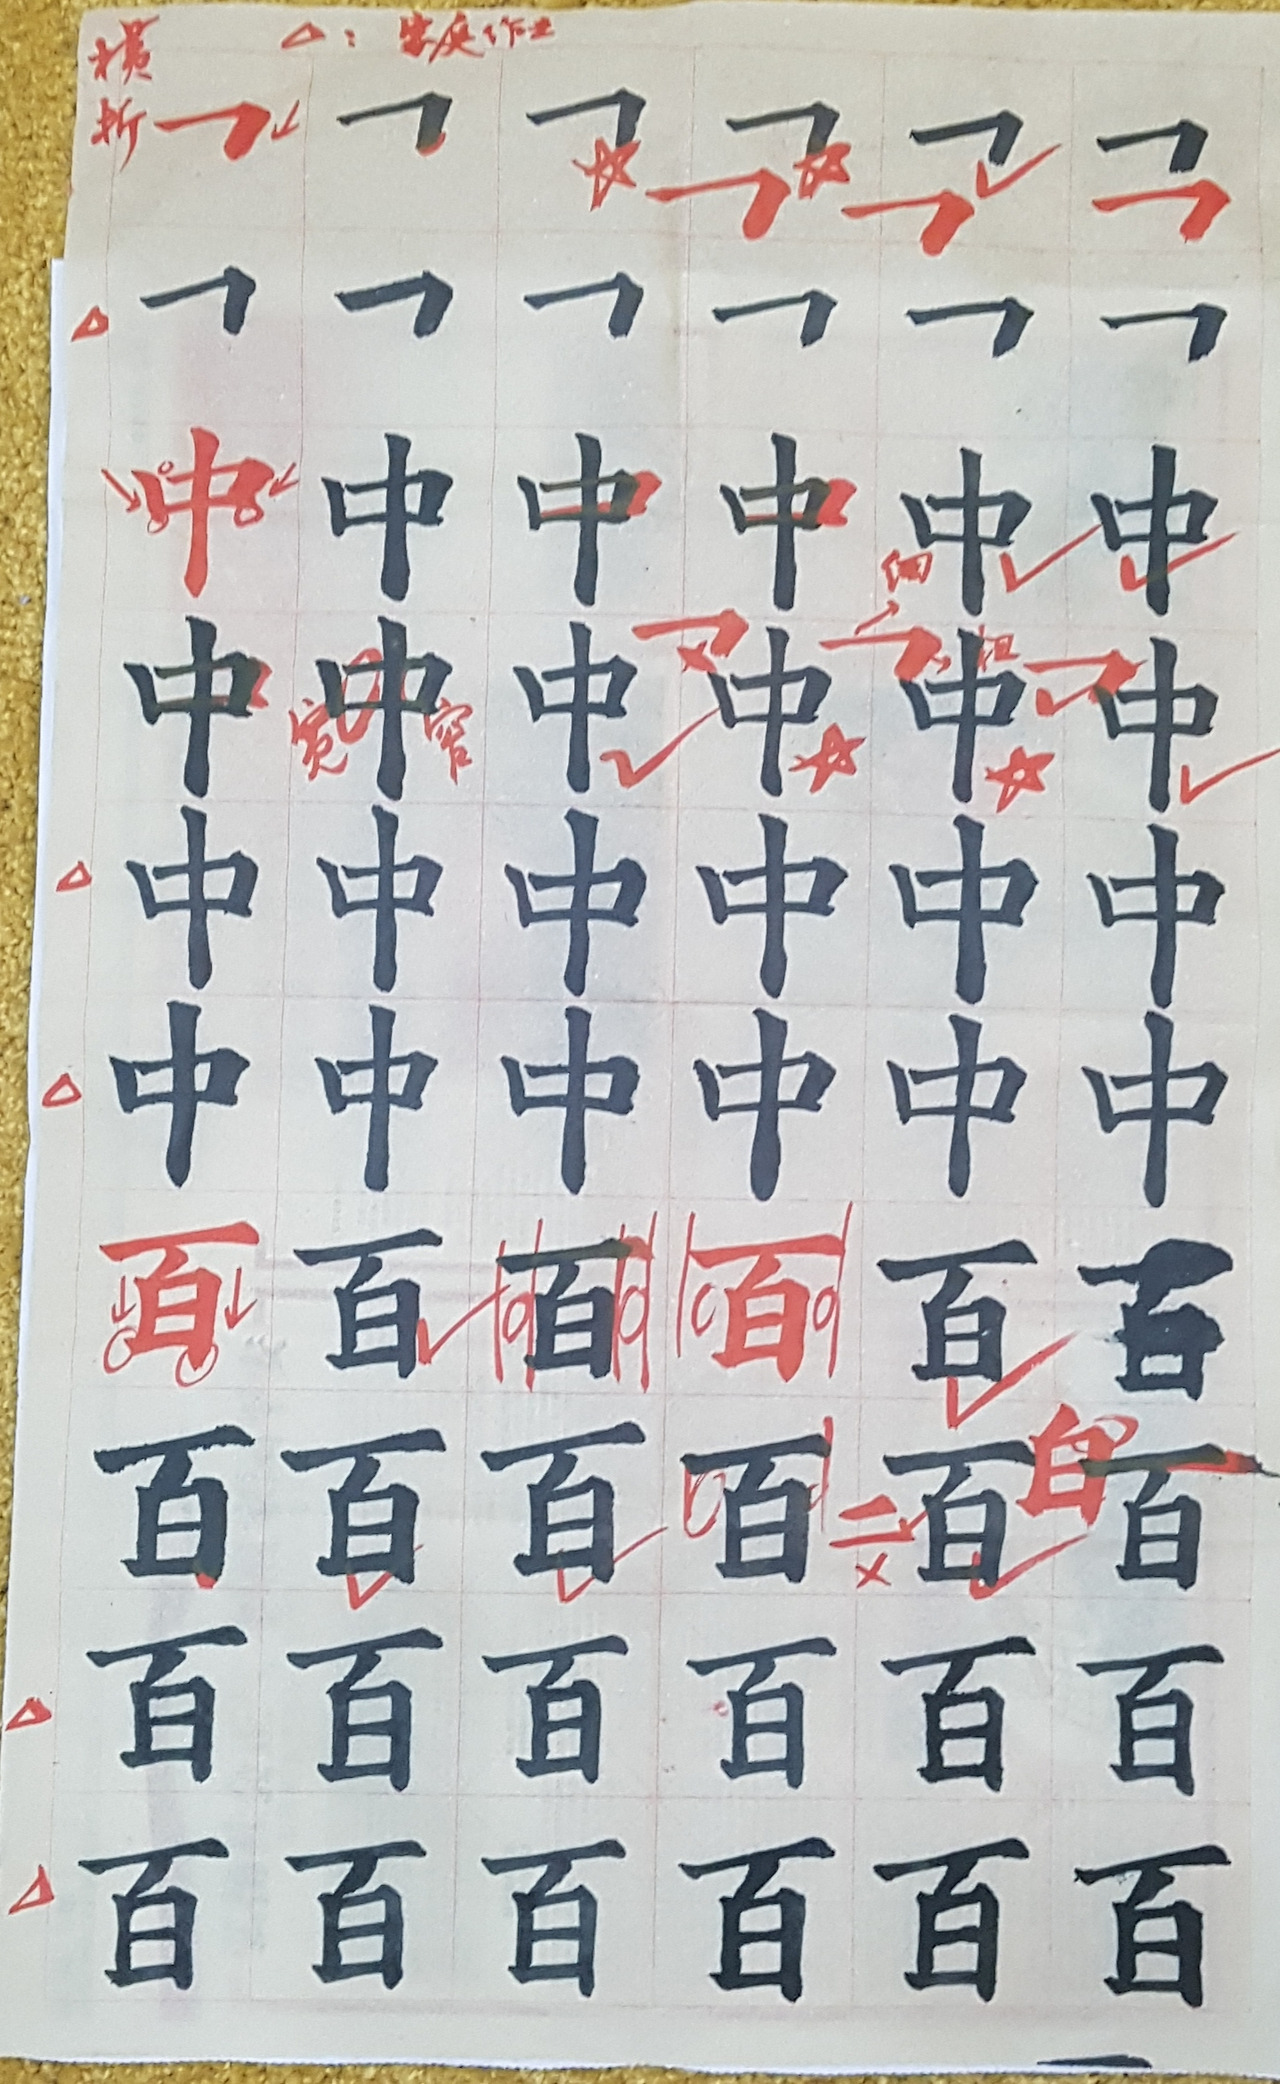 横折
△：家庭作业
中中中中中中
细 粗
中中中中中中
宽 窄
中中中中中中
中中中中中中
百百百百百百
白
百百百百百百
百百百百百百
百百百百百百